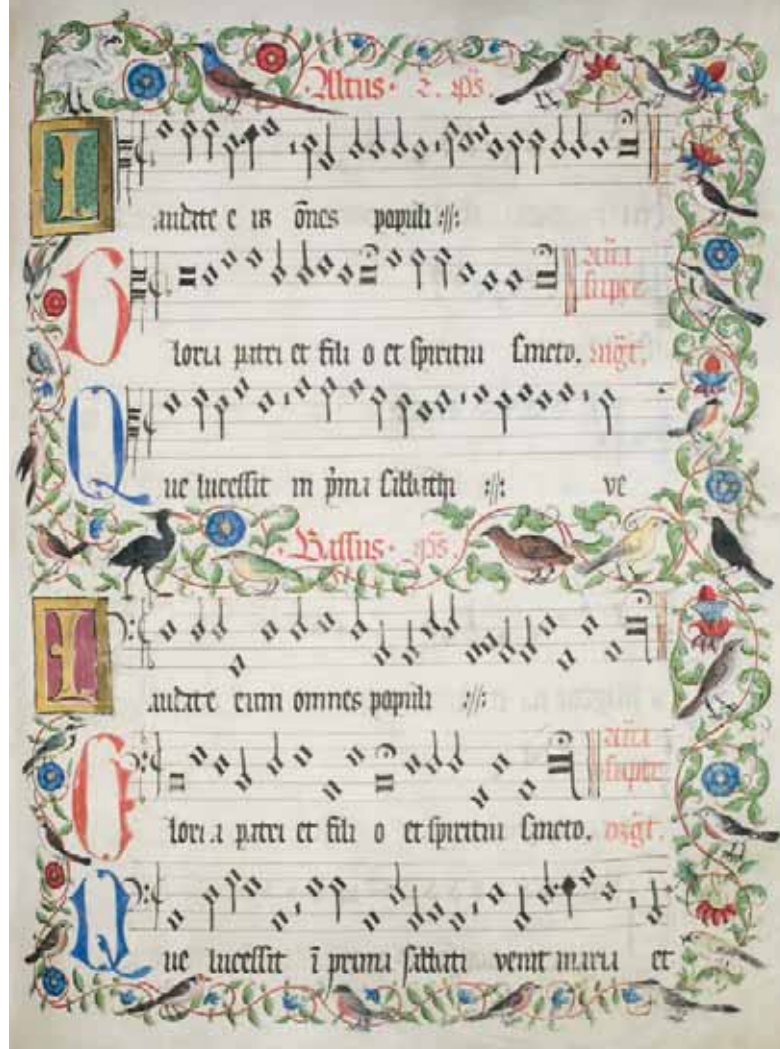 ·Altus· 2. ps̄.
Laudate e ū ōnes populi :||:
Gloria patri et fili o et spiritui sancto.
an̄a
super
mgt̄.
Que lucessit in p̄ma sabbathi :||: ve
·Bassus· ps̄.
Laudate eum omnes populi :||:
Gloria patri et fili o et spiritui sancto.
an̄a
super
mgt̄.
Que lucessit ī prima sabbati venit maria et